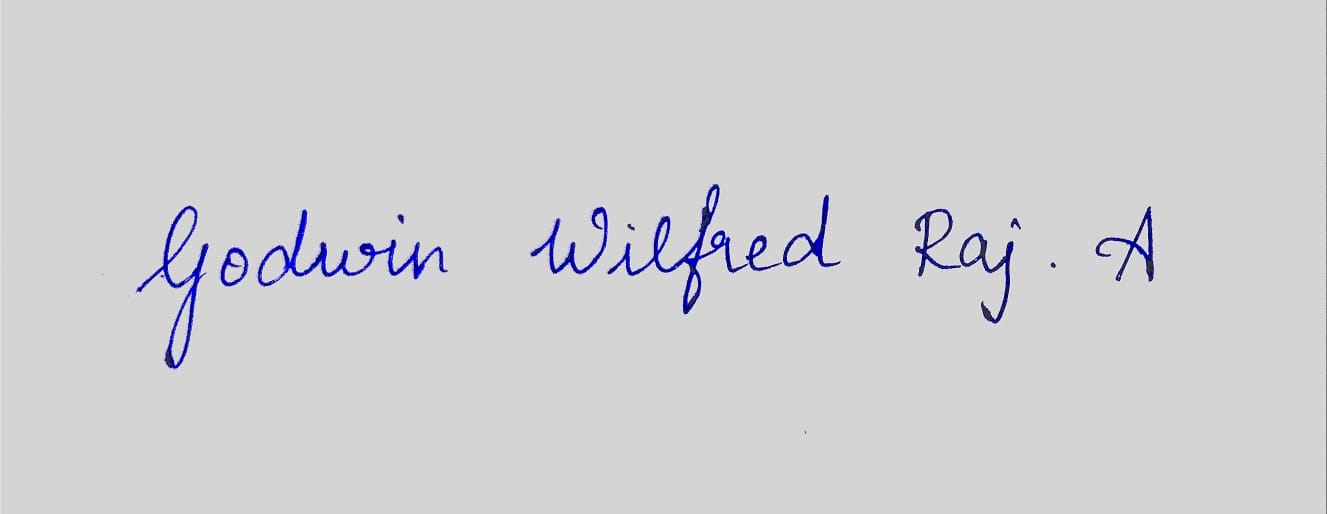 Godwin Wilfred Raj. A